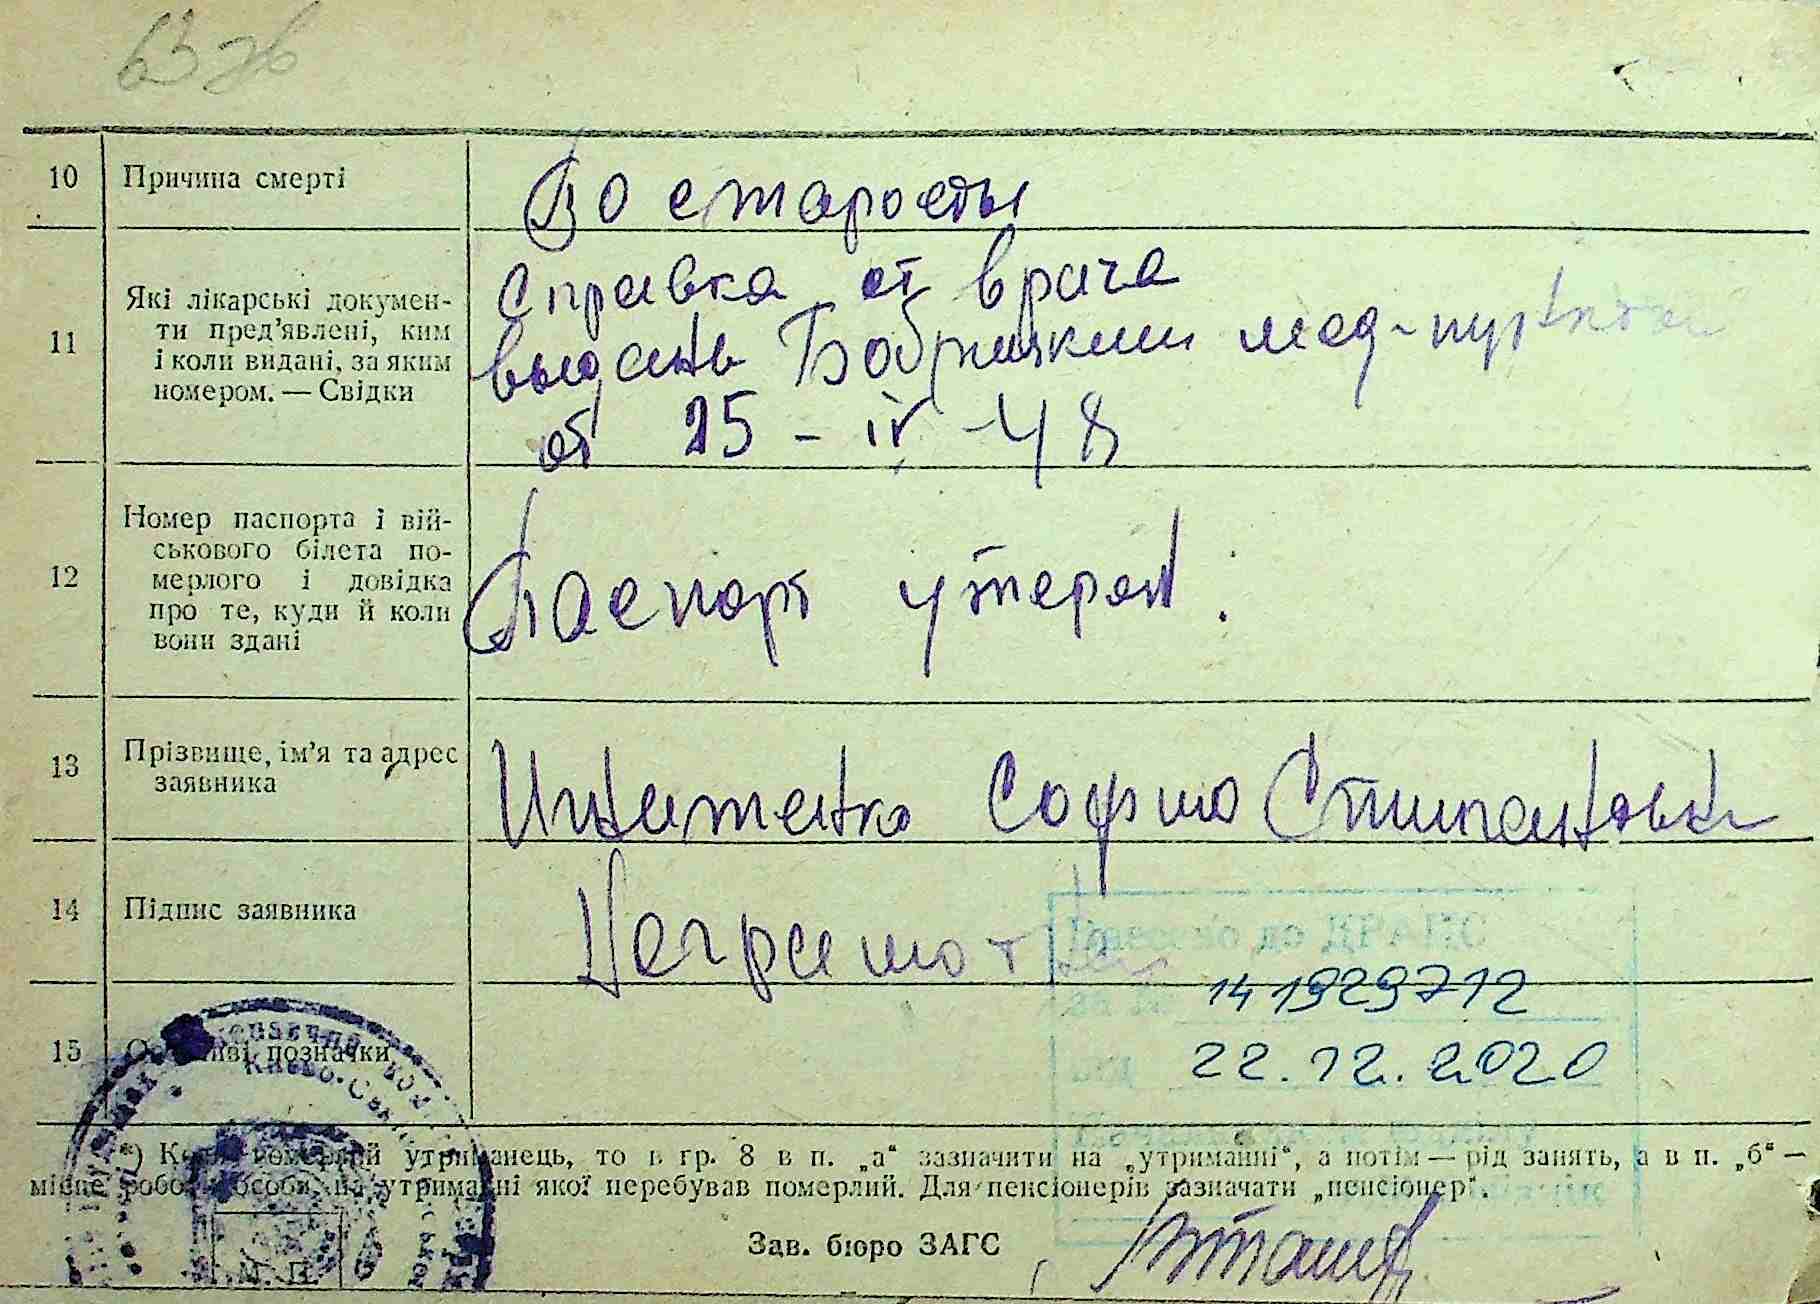 10 Причина смерті
Во старосты
11 Які лікарські докумен-
ти пред'явлені, ким
і коли видані, за яким
номером. — Свідки
Справка от врача
выдань Бобрицким мед-пунктом
от 25 - IV - 48
12 Номер паспорта і вій-
ськового білета по-
мерлого і довідка
про те, куди й коли
вони здані
Паспорт утерян.
13 Прізвище, ім'я та адрес
заявника
Игнатенко София
14 Підпис заявника
Неграмот
141929712
15 позначки
22.12.2020
*) утриманець, то в гр. 8 в п. „а“ зазначити на „утриманні“, а потім — рід занять, а в п. „б“ —
місце роботи особи, на утриманні якої перебував померлий. Для пенсіонерів зазначати „пенсіонер“.
Зав. бюро ЗАГС
М. П.